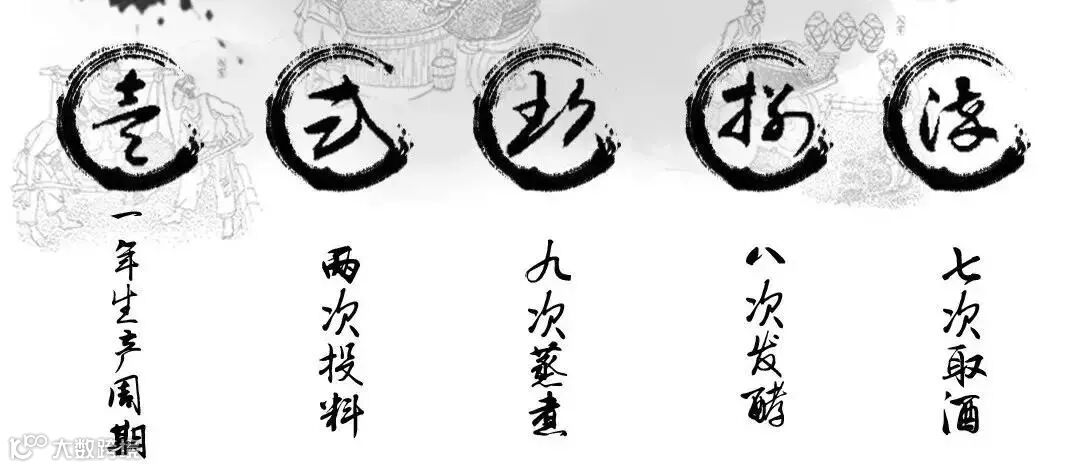 壹
弍
玖
捌
柒
一年生产周期
两次投料
九次蒸煮
八次发酵
七次取酒
大数跨境